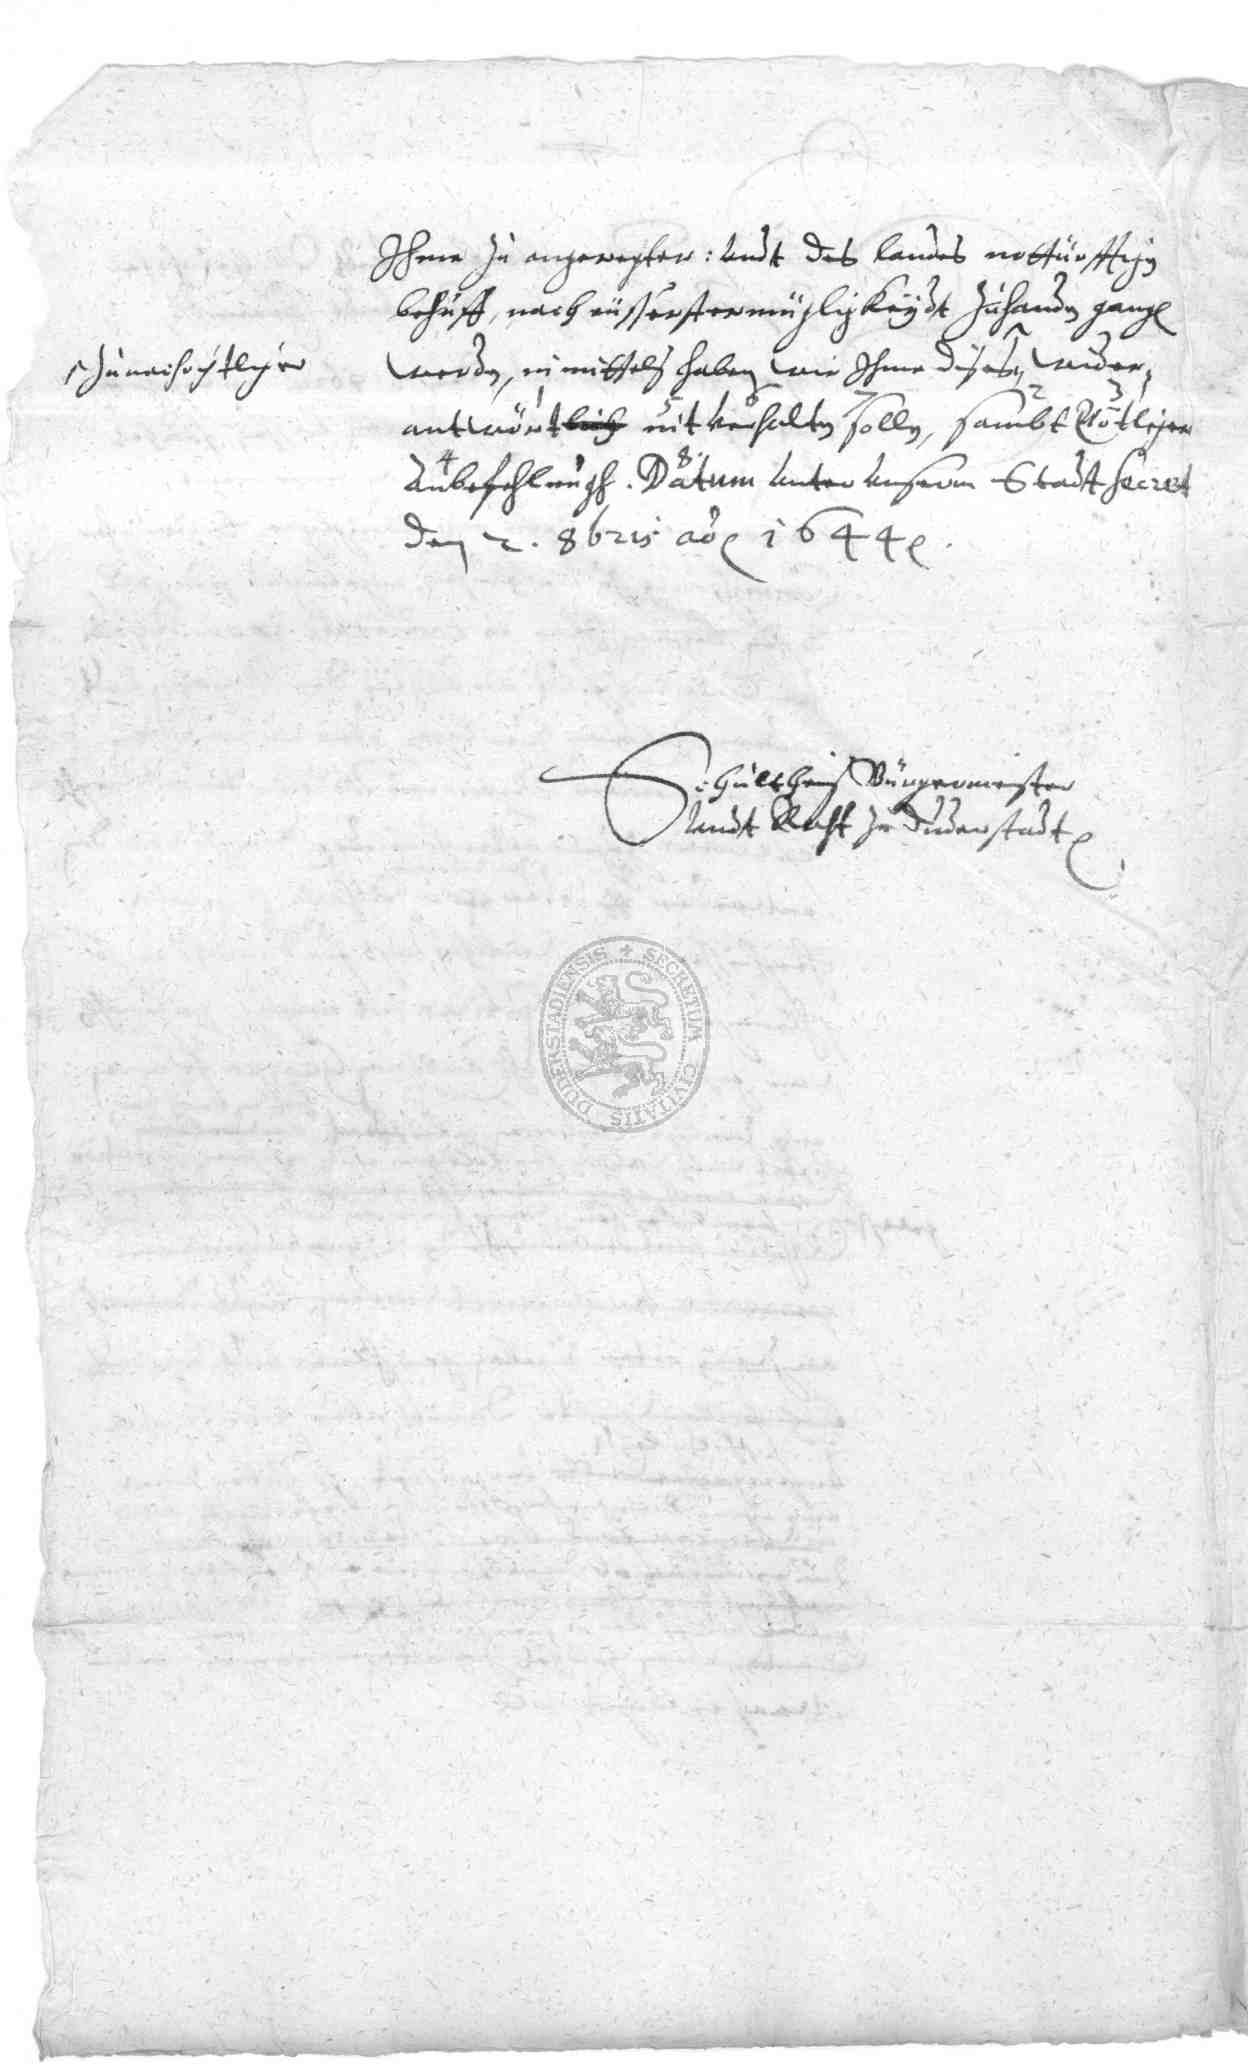 Ihme zu angeregter: undt des landes notturfftigen
behuff, nach eüsserster müglichkeydt zuhanden gangen
werden, inmittels haben wir Ihme dieses, wider,
zunachrichtlicher
antwortlich nit verhalten sollen, sambt Göttlicher
1 5 6 7 2 3
anbefehlungh. Datum unter unserm Stadt Secret
4 8
den 2. 8bris ao 1644.
Schultheis Bürgermeister
undt Raht zu Duderstadt
SECRETUM CIVITATIS DUDERSTADIENSIS